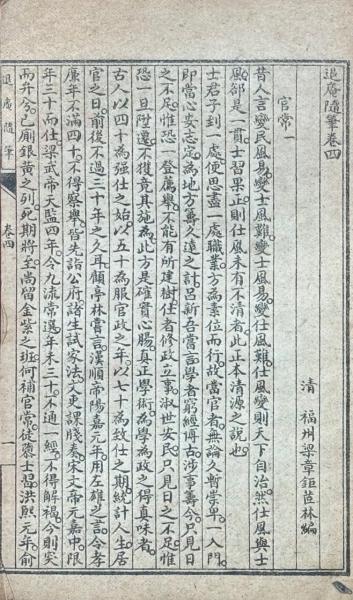 退庵隨筆卷四
清　福州梁章鉅茝林編
官常一
昔人言變民風易。變士風難。變士風易。變仕風難。仕風變則天下自治。然仕風與士
風卻是一貫。士習果正。則仕風未有不清者。此正本清源之說也。
士君子到一處。便思盡一處職業。方為素位而行。故當官者。無論久暫。常卑一入門。
即當心安志定。為地方籌久遠之計。呂新吾嘗言。學者窮經博古。涉事籌今。只見日
之不足。惟恐一登薦舉。不能有所建樹。仕者修政立事。淑世安民。只見日之不足。惟
恐一旦陞遷。不獲竟其施為。此方是確實心腸。真正學術。為學為政之得真味者。
古人以四十為強仕之始。以五十為服官政之年。以七十為致仕之期。統計人生居
官之日。前後不過三十年之久耳。顧亭林嘗言。漢順帝陽嘉元年。用左雄之言。令孝
廉年不滿四十。不得察舉。皆先詣公府。諸生試家法。文吏課牋奏。宋文帝元嘉中。限
年三十而仕。梁武帝天監四年。令九流常選。年未三十。不通一經。不得解褐。今則突
而弁兮。已廁銀黃之列。死期將至。尚留金紫之班。何補官常。徒隳士習。洪熙元年。俞
退庵隨筆
卷四
一